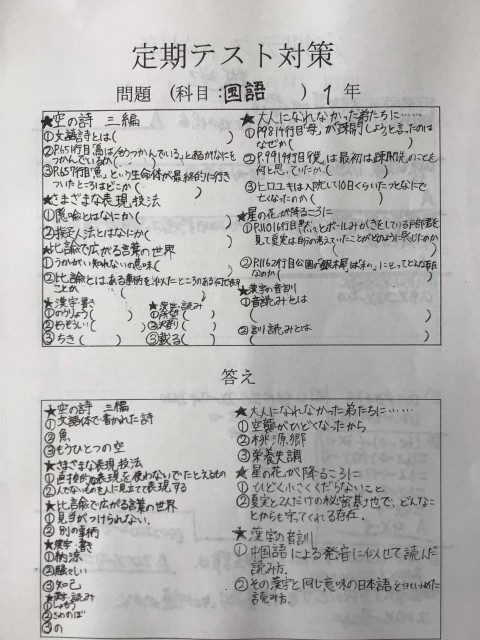 定期テスト対策
問題 (科目:国語 ) 1 年
★空の詩 三編
①文語詩とは( )
②P.65行目「鳶は「もうつかんでいる」と
つかんでいるか( )
③P.65行目「魚」という生命体が最終的に行き
ついたところはどこか( )
★さまざまな表現技法
①隠喩とはなにか( )
②擬人法とはなにか( )
★比喩で広がる言葉の世界
①うかがい知れないの意味( )
②比喩とはある事柄を
ことか( )
★漢字書き
①のうりょう( )
②そうぞうしい( )
③ちき( )
★漢字・読み
①
②
③載る( )
★大人になれなかった弟たちに……
①P.98 14行目「母」が疎開しようと言ったのは
なぜか( )
②P.99 14行目「僕」は最初は疎開先のことを
何と思っていたか( )
③ヒロユキは入院して10日くらいたってなにで
亡くなったのか( )
★星の花が降るころに
①P.110 16行目 黙々とボールみがきをしている戸部君を
見て夏実は自分の考えていたことがどのように感じたのか
( )
②P.116 2行目公園の「銀木犀」は「私」にとってどんな存在
なのか( )
★漢字の音訓
①音読みとは
( )
②訓読みとは
( )
答え
★空の詩 三編
①文語体で書かれた詩
②魚
③もうひとつの空
★さまざまな表現技法
①直接的な表現を使わないでたとえるもの
②人でないものを人に見立てて表現する
★比喩で広がる言葉の世界
①見当がつけられない。
②別の事柄
★漢字・書き
①納涼
②騒々しい
③知己
★漢字・読み
①しょもう
②
③の
★大人になれなかった弟たちに……
①空襲がひどくなったから
②桃源郷
③栄養失調
★星の花が降るころに
①ひどく小さくくだらないこと
②夏実と2人だけの秘密基地で、どんなこ
とからも守ってくれる存在.
★漢字の音訓
①中国語による発音に似せて読んだ
読み方.
②その漢字と同じ意味の日本語を当てはめた
読み方.